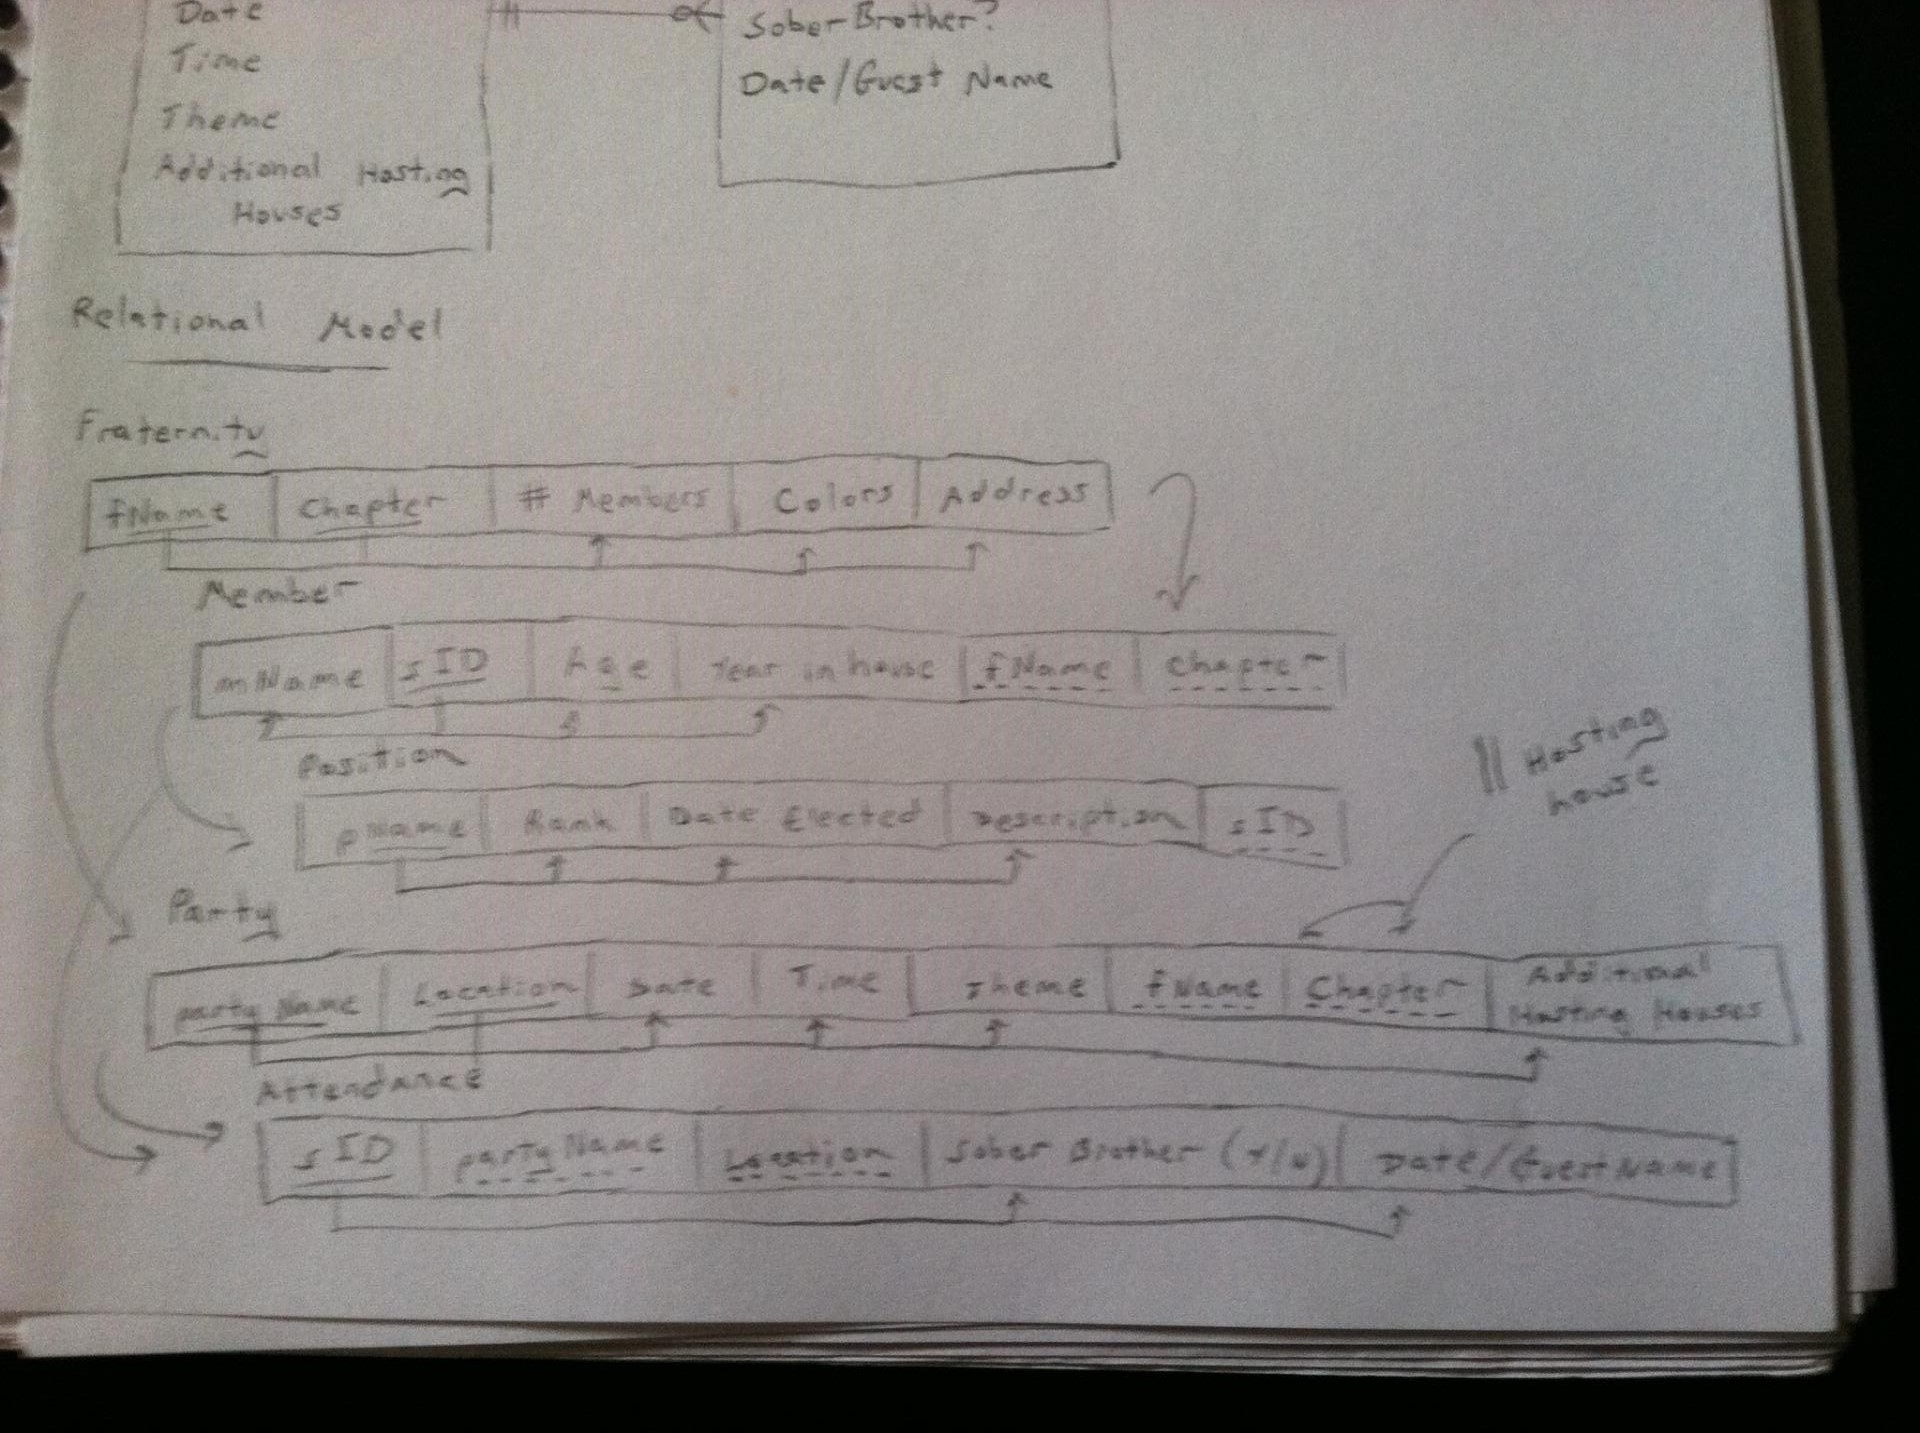 Date
Time
Theme
Additional Hosting
Houses
Sober Brother?
Date/Guest Name
Relational Model
Fraternity
fName Chapter # Members Colors Address
Member
mName sID Age Year in house fName Chapter
Position
pName Rank Date Elected Description sID
Hosting
house
Party
partyName Location Date Time Theme fName Chapter Additional
Hosting Houses
Attendance
sID partyName Location Sober Brother (Y/N) Date/GuestName